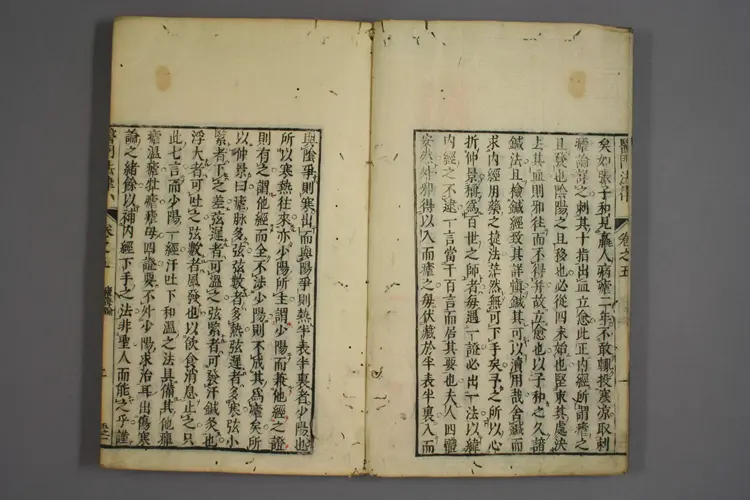 醫門法律 卷之五 一
矣如張子和見轟人病瘧二年不敢輒投寒凉取刺
瘧論詳之刺其十指出血立愈此正內經所謂瘧之
且發也陰陽之且移也必從四末始也堅束其處決
上其血則邪往而不得并故立愈也以子和之久諳
鍼法且檢鍼經致其詳愼鍼其可以瀆用哉舍鍼而
求內經用藥之捷法茫然無可下手矣予之所以心
折仲景稱爲百世之師者每遇一證必出一法以緯
內經之不逮一言當千百言而居其要也夫人四體
安然外邪得以入而瘧之每伏藏於半表半裏入而
與陰爭則寒出而與陽爭則熱半表半裏者少陽也
所以寒熱往來亦少陽所主謂少陽而兼他經之證
則有之謂他經而全不涉少陽則不成其爲瘧矣所
以仲景曰瘧脉多弦弦數者多熱弦遲者多寒弦小
緊者下之差弦遲者可溫之弦緊者可發汗鍼灸也
浮大者可吐之弦數者風發也以飲食消息止之只
此七言而少陽一經汗吐下和溫之法具備其他癉
瘧溫瘧牡瘧瘧母四證要不外少陽求治耳出傷寒
論之緒餘以神內經下手之法非聖人而能之乎謹
卷之五 瘧證論